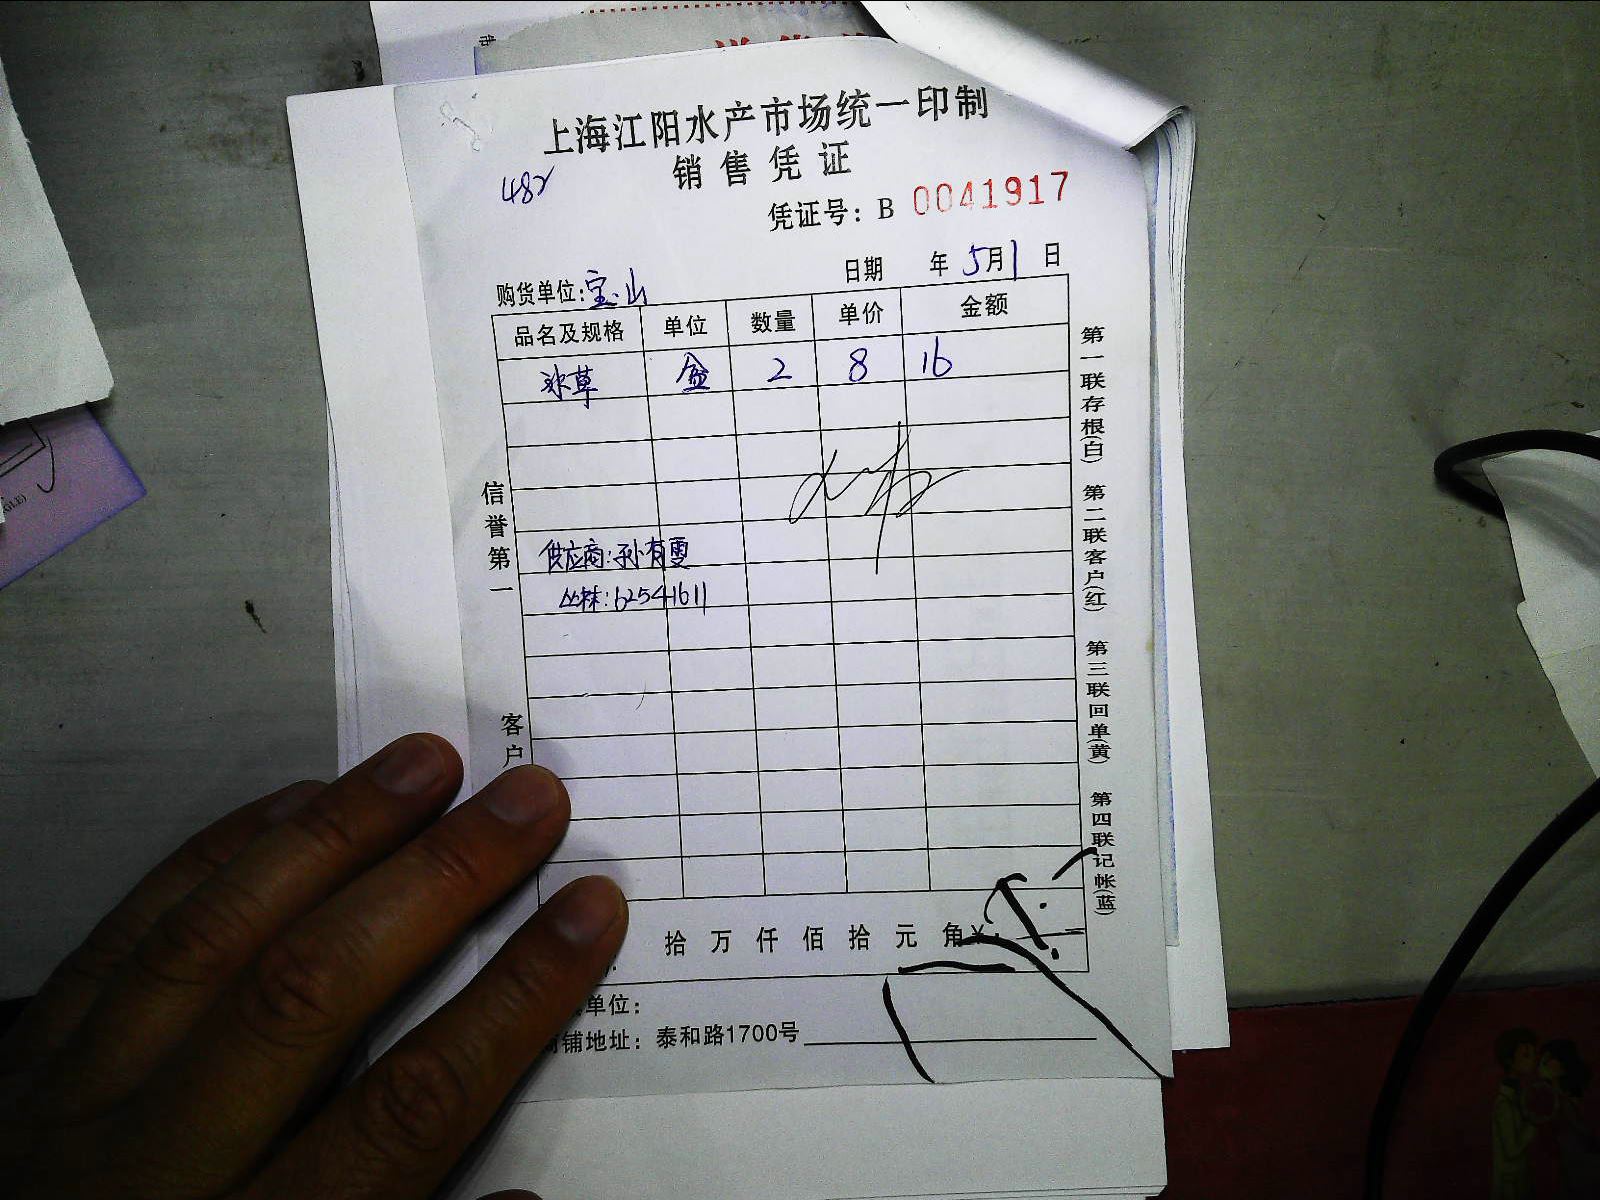 上海江阳水产市场统一印制
销售凭证
482
凭证号：B 0041917
日期 年 5月1日
购货单位:宝山
品名及规格 单位 数量 单价 金额
冰草 盒 2 8 16
供应商:孙有雯
丛林:62541611
信誉第一
客户
第一联存根(白) 第二联客户(红) 第三联回单(黄) 第四联记帐(蓝)
拾万仟佰拾元角¥
单位：
铺地址：泰和路1700号